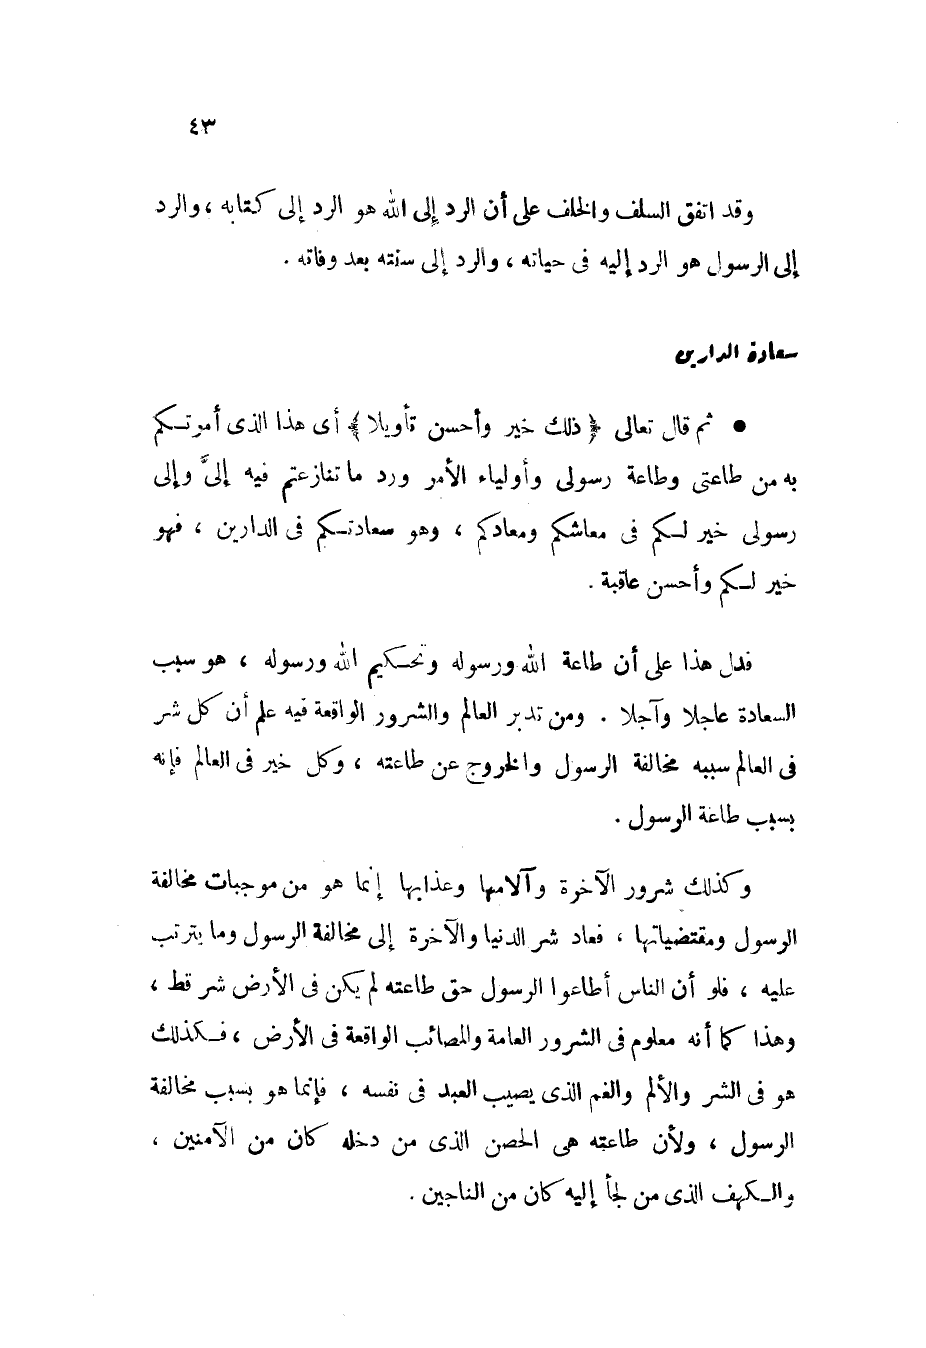 ٤٣
وقد اتفق السلف والخلف على أن الرد إلى الله هو الرد إلى كتابه ، والرد
إلى الرسول هو الرد إليه فى حياته ، والرد إلى سنته بعد وفاته .
سعادة الدارين
● ثم قال تعالى ﴿ ذلك خير وأحسن تأويلا ﴾ أى هذا الذى أمرتكم
به من طاعتى وطاعة رسولى وأولياء الأمر ورد ما تنازعتم فيه إلىَّ وإلى
رسولى خير لكم فى معاشكم ومعادكم ، وهو سعادتكم فى الدارين ، فهو
خير لكم وأحسن عاقبة .
فدل هذا على أن طاعة الله ورسوله وتحكيم الله ورسوله ، هو سبب
السعادة عاجلا وآجلا . ومن تدبر العالم والشرور الواقعة فيه علم أن كل شر
فى العالم سببه مخالفة الرسول والخروج عن طاعته ، وكل خير فى العالم فإنه
بسبب طاعة الرسول .
وكذلك شرور الآخرة وآلامها وعذابها إنما هو من موجبات مخالفة
الرسول ومقتضياتها ، فعاد شر الدنيا والآخرة إلى مخالفة الرسول وما يترتب
عليه ، فلو أن الناس أطاعوا الرسول حق طاعته لم يكن فى الأرض شر قط ،
وهذا كما أنه معلوم فى الشرور العامة والمصائب الواقعة فى الأرض ، فكذلك
هو فى الشر والألم والغم الذى يصيب العبد فى نفسه ، فإنما هو بسبب مخالفة
الرسول ، ولأن طاعته هى الحصن الذى من دخله كان من الآمنين ،
والكهف الذى من لجأ إليه كان من الناجين .